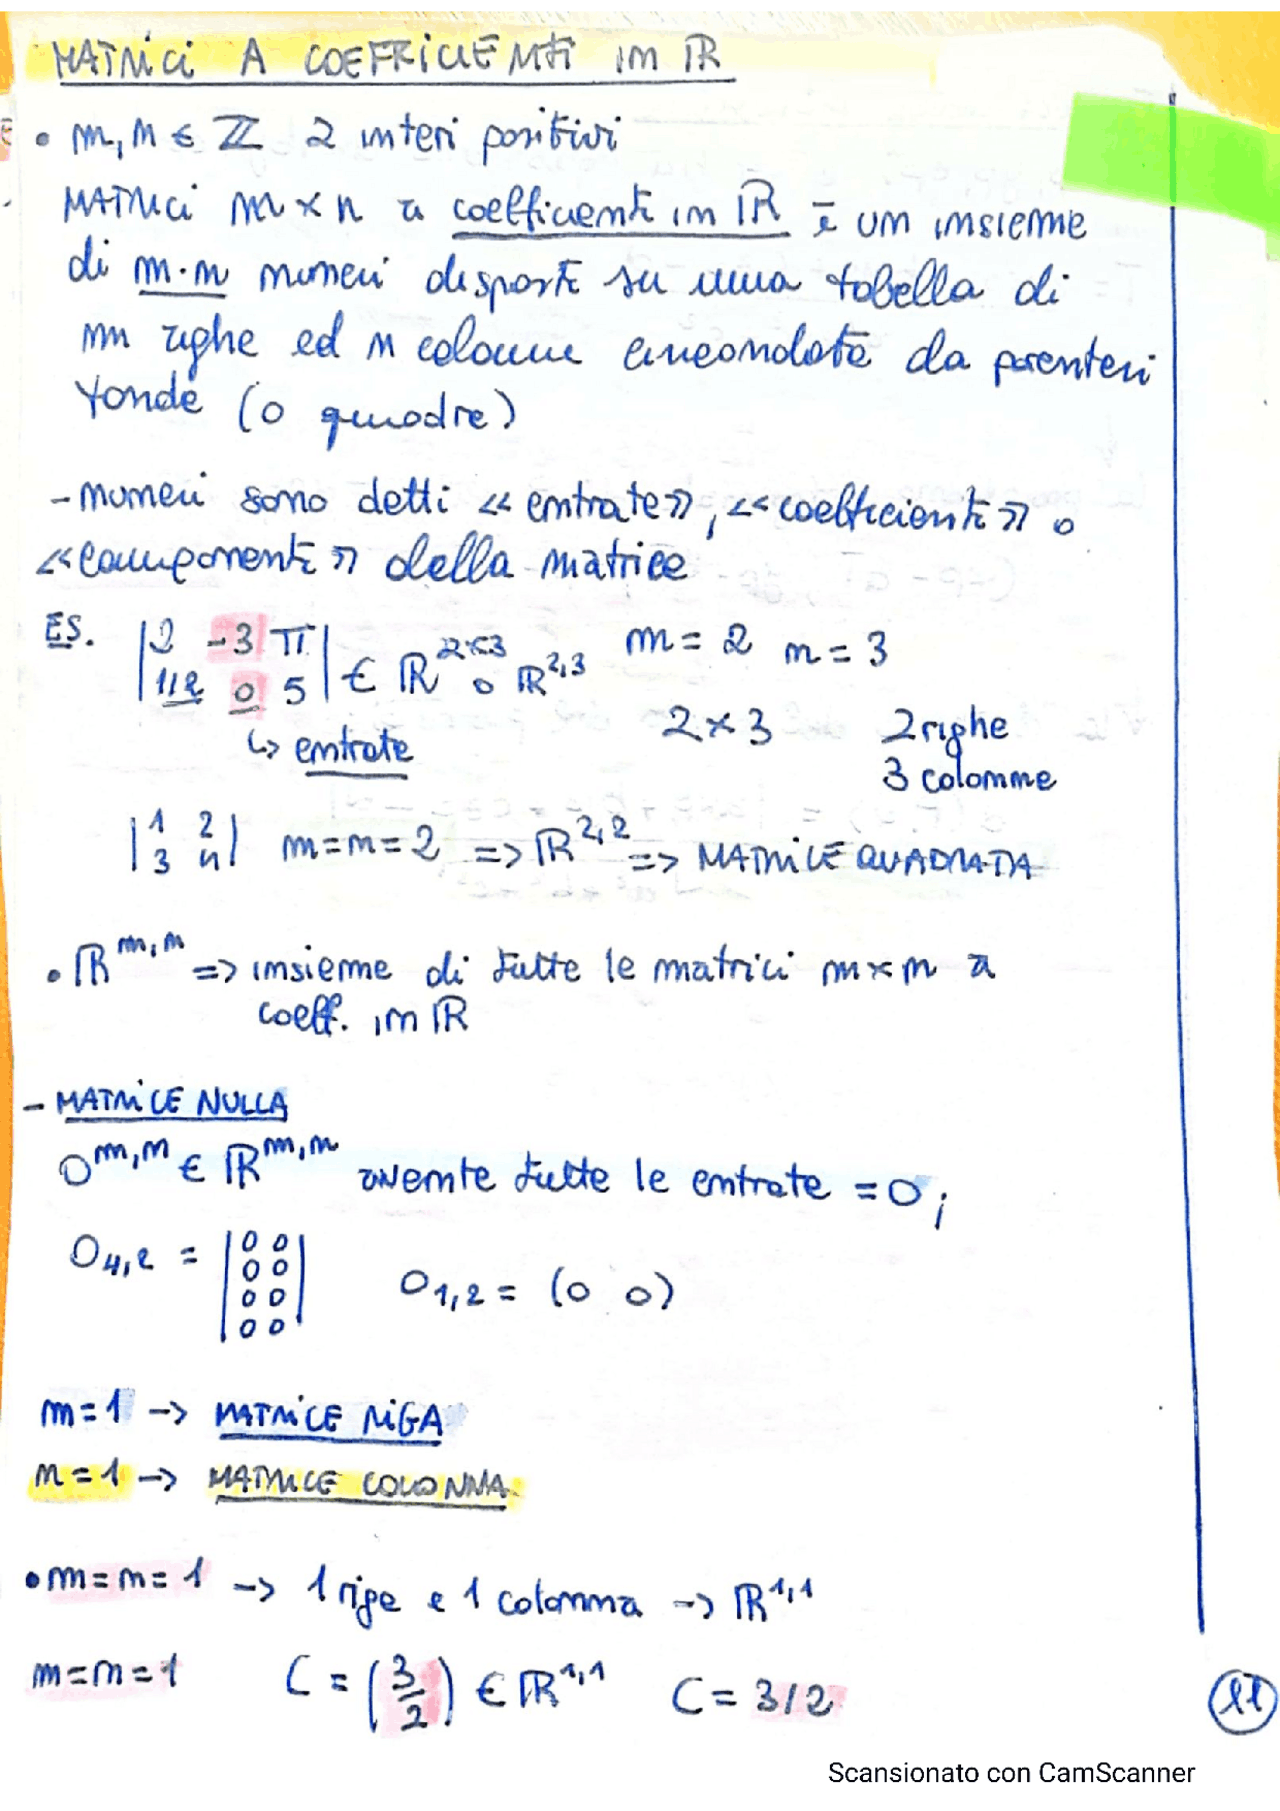 MATRICI A COEFFICIENTI in ℝ
• m, n ∈ ℤ 2 interi positivi
MATRICI m × n a coefficienti in ℝ è un insieme
di m·n numeri disposti su una tabella di
m righe ed n colonne circondate da parentesi
tonde (o quadre)
- numeri sono detti «entrate», «coefficienti» o
«componenti» della matrice
ES. |2 -3 π| ∈ ℝ^2×3 o ℝ^2,3 m = 2 n = 3
|1/2 0 5|
2 × 3 2 righe
↳ entrate
3 colonne
|1 2| m = n = 2 => ℝ^2,2 => MATRICE QUADRATA
|3 4|
• ℝ^m,n => insieme di tutte le matrici m×n a
coeff. in ℝ
- MATRICE NULLA
0^m,n ∈ ℝ^m,n avente tutte le entrate = 0;
0_4,2 = |0 0| 0_1,2 = (0 0)
|0 0|
|0 0|
|0 0|
m = 1 -> MATRICE RIGA
n = 1 -> MATRICE COLONNA
• m = n = 1 -> 1 riga e 1 colonna -> ℝ^1,1
m = n = 1 C = (3/2) ∈ ℝ^1,1 C = 3/2
11
Scansionato con CamScanner